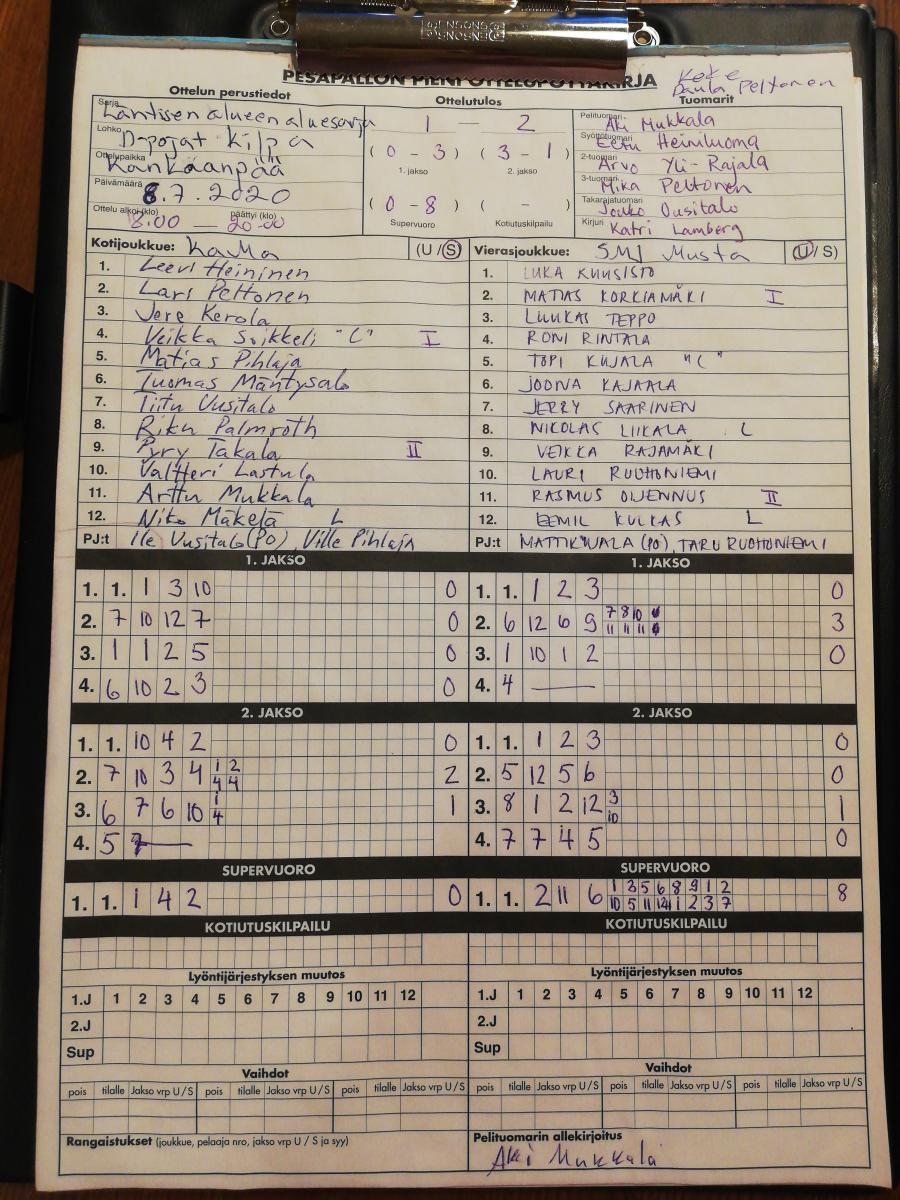 PESÄPALLON PIENI OTTELUPÖYTÄKIRJA
Keke
Paula Peltonen
Ottelun perustiedot
Ottelutulos
Tuomarit
Sarja Läntisen alueen aluesarja
Lohko D-pojat Kilpa
Ottelupaikka Kankaanpää
Päivämäärä 8.7.2020
Ottelu alkoi (klo) 18.00 — päättyi (klo) 20.00
1 — 2
(0 - 3) (3 - 1)
1. jakso 2. jakso
(0 - 8) ( - )
Supervuoro Kotiutuskilpailu
Pelituomari Aki Mukkala
Syöttötuomari Eetu Heiniluoma
2-tuomari Arvo Yli-Rajala
3-tuomari Mika Peltonen
Takarajatuomari Jouko Uusitalo
Kirjuri Katri Lamberg
Kotijoukkue: KaMa (U/S)
1. Leevi Heininen
2. Lars Peltonen
3. Jere Kerola
4. Veikka Soikkeli "C" I
5. Matias Pihlaja
6. Tuomas Mäntysalo
7. Tiitu Uusitalo
8. Riku Palmroth
9. Pyry Takala II
10. Valtteri Lastula
11. Arttu Mukkala
12. Niko Mäkelä L
PJ:t Ile Uusitalo (PO), Ville Pihlaja
Vierasjoukkue: SMJ Musta (U/S)
1. LUKA KUUSISTO
2. MATIAS KORKIAMÄKI I
3. LUUKAS TEPPO
4. RONI RINTALA
5. TOPI KUJALA "C"
6. JOONA KAJAALA
7. JERRY SAARINEN
8. NIKOLAS LIIKALA L
9. VEIKKA RAJAMÄKI
10. LAURI RUOHONIEMI
11. RASMUS OJENNUS II
12. EEMIL KULKAS L
PJ:t MATTI KUJALA (PO), TARU RUOHONIEMI
1. JAKSO
1. 1. 1 3 10 0
2. 7 10 12 7 0
3. 1 1 2 5 0
4. 6 10 2 3 0
1. JAKSO
1. 1. 1 2 3 0
2. 6 12 6 9 7 8 10 3
11 11 11
3. 1 10 1 2 0
4. 4 —
2. JAKSO
1. 1. 10 4 2 0
2. 7 10 3 4 1 2 2
4 4
3. 6 7 6 10 1 1
4
4. 5 7 —
2. JAKSO
1. 1. 1 2 3 0
2. 5 12 5 6 0
3. 8 1 2 12 3 1
10
4. 7 7 4 5 0
SUPERVUORO
1. 1. 1 4 2 0
SUPERVUORO
1. 1. 2 11 6 1 3 5 6 8 9 1 2 8
10 5 11 12 1 2 3 7
KOTIUTUSKILPAILU
KOTIUTUSKILPAILU
Lyöntijärjestyksen muutos
1.J 1 2 3 4 5 6 7 8 9 10 11 12
2.J
Sup
Lyöntijärjestyksen muutos
1.J 1 2 3 4 5 6 7 8 9 10 11 12
2.J
Sup
Vaihdot
pois tilalle Jakso vrp U/S pois tilalle Jakso vrp U/S pois tilalle Jakso vrp U/S
Vaihdot
pois tilalle Jakso vrp U/S pois tilalle Jakso vrp U/S pois tilalle Jakso vrp U/S
Rangaistukset (joukkue, pelaaja nro, jakso vrp U / S ja syy)
Pelituomarin allekirjoitus
Aki Mukkala